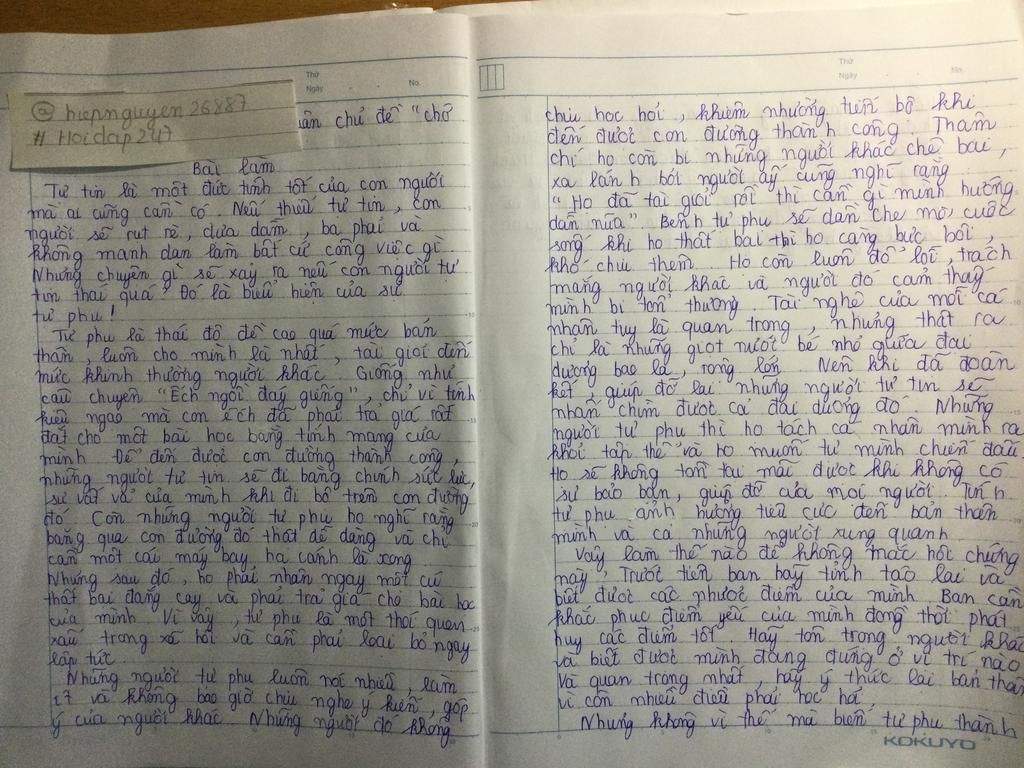 @ hiepnguyen26887
# Hoidap247
văn chủ đề "chớ
Bài làm
Tự tin là một đức tính tốt của con người
mà ai cũng cần có. Nếu thiếu tự tin, con
người sẽ rụt rè, dựa dẫm, ba phải và
không mạnh dạn làm bất cứ công việc gì.
Nhưng chuyện gì sẽ xảy ra nếu con người tự
tin thái quá? Đó là biểu hiện của sự
tự phụ!
Tự phụ là thái độ đề cao quá mức bản
thân, luôn cho mình là nhất, tài giỏi đến
mức khinh thường người khác. Giống như
câu chuyện "Ếch ngồi đáy giếng", chỉ vì tính
kiêu ngạo mà con ếch đã phải trả giá rất
đắt cho một bài học bằng tính mạng của
mình. Để đến được con đường thành công,
những người tự tin sẽ đi bằng chính sức lực,
sự vất vả của mình khi đi bộ trên con đường
đó. Còn những người tự phụ họ nghĩ rằng
băng qua con đường đó thật dễ dàng và chỉ
cần một cái máy bay hạ cánh là xong.
Nhưng sau đó, họ phải nhận ngay một cú
thất bại đắng cay và phải trả giá cho bài học
của mình. Vì vậy, tự phụ là một thói quen
xấu trong xã hội và cần phải loại bỏ ngay
lập tức.
Những người tự phụ luôn nói nhiều, làm
ít và không bao giờ chịu nghe ý kiến, góp
ý của người khác. Những người đó không
Thứ
Ngày
No.
Thứ
Ngày
No.
chịu học hỏi, khiêm nhường tiến bộ khi
đến được con đường thành công. Thậm
chí họ còn bị những người khác chê bai,
xa lánh bởi người ấy cũng nghĩ rằng
"Họ đã tài giỏi rồi thì cần gì mình hướng
dẫn nữa". Bệnh tự phụ sẽ dần che mờ cuộc
sống khi họ thất bại thì họ càng bực bội,
khó chịu thêm. Họ còn luôn đổ lỗi, trách
mắng người khác và người đó cảm thấy
mình bị tổn thương. Tài nghệ của mỗi cá
nhân tuy là quan trọng, nhưng thật ra
chỉ là những giọt nước bé nhỏ giữa đại
dương bao la, rộng lớn. Nên khi đã đoàn
kết, giúp đỡ lại những người tự tin sẽ
nhấn chìm được cả đại dương đó. Những
người tự phụ thì họ tách cá nhân mình ra
khỏi tập thể và họ muốn tự mình chiến đấu.
Họ sẽ không tồn tại mãi được khi không có
sự bảo ban, giúp đỡ của mọi người. Tính
tự phụ ảnh hưởng tiêu cực đến bản thân
mình và cả những người xung quanh.
Vậy làm thế nào để không mắc hội chứng
này? Trước tiên bạn hãy tỉnh táo lại và
biết được các nhược điểm của mình. Bạn cần
khắc phục điểm yếu của mình đồng thời phát
huy các điểm tốt. Hãy tôn trọng người khác
và biết được mình đang đứng ở vị trí nào.
Và quan trọng nhất, hãy ý thức lại bản thân
vì còn nhiều điều phải học hỏi.
Nhưng không vì thế mà biến tự phụ thành
KOKUYO